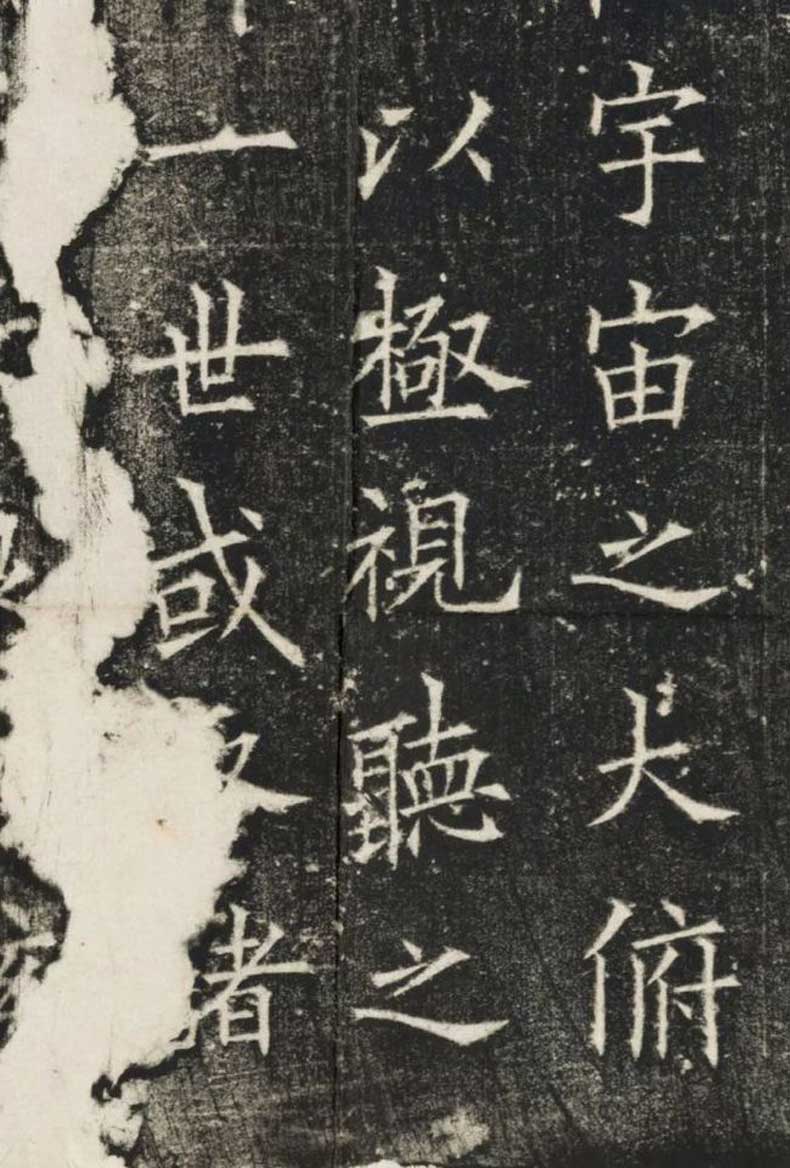 宇宙之大俯
以極視聽之
一世或
者